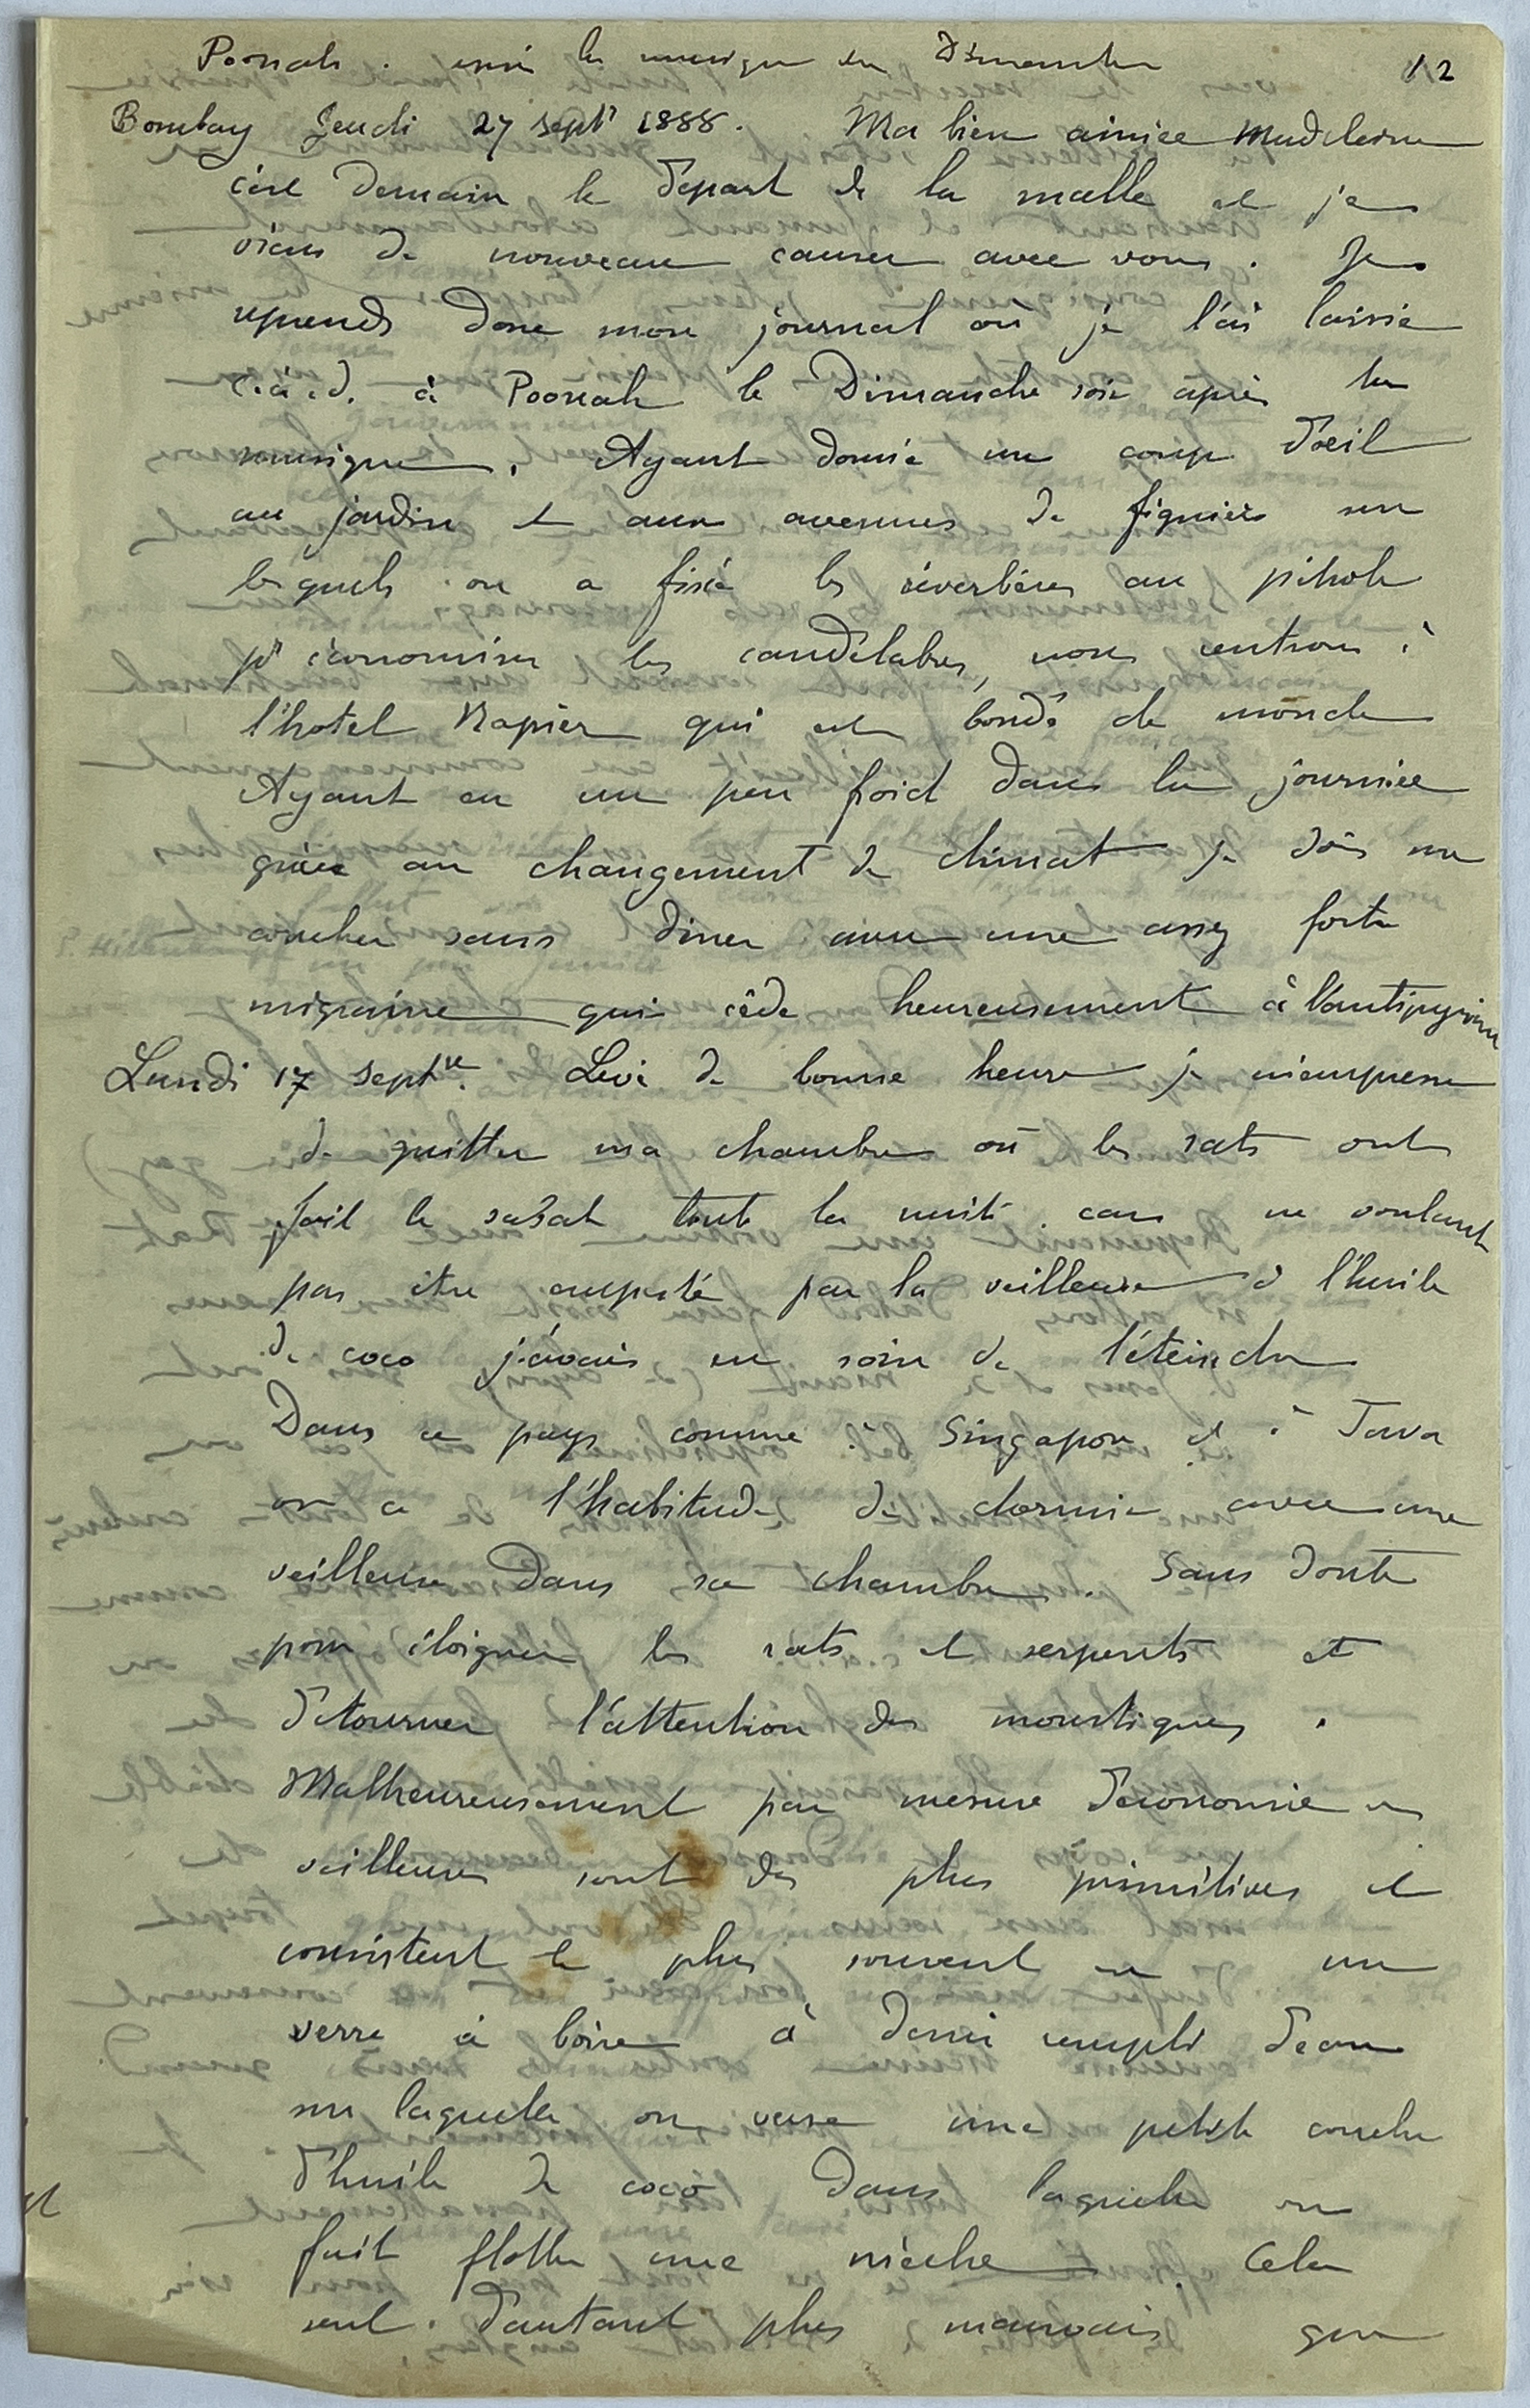 Poonah. après la musique du Dimanche 12
Bombay Jeudi 27 sept 1888. Ma bien aimée Madeleine
c'est demain le départ de la malle et je
viens de nouveau causer avec vous. Je
reprends donc mon journal où je l'ai laissé
c.à.d. à Poonah le Dimanche soir après la
musique. Ayant donné un coup d'oeil
au jardin et aux avenues de figuiers sur
lesquels on a fixé les réverbères au pétrole
pr économiser les candélabres, nous rentrons à
l'hotel Napier qui est bondé de monde
Ayant eu un peu froid dans la journée
grâce au changement de climat je dois me
coucher sans diner avec une assez forte
migraine qui cède heureusement à l'antipyrine
Lundi 17 septre. Levé de bonne heure je m'empresse
de quitter ma chambre où les rats ont
fait le sabat toute la nuit. car ne voulant
pas être empesté par la veilleuse à l'huile
de coco j'avais eu soin de l'éteindre
Dans ce pays comme à Singapore et à Java
on a l'habitude de dormir avec une
veilleuse dans sa chambre. Sans doute
pour éloigner les rats et serpents et
détourner l'attention des moustiques.
Malheureusement par mesure d'économie ces
veilleuses sont des plus primitives et
consistent le plus souvent en un
verre à boire à demi rempli d'eau
sur laquelle on verse une petite couche
d'huile de coco dans laquelle on
fait flotter une mèche. Cela
sent d'autant plus mauvais que